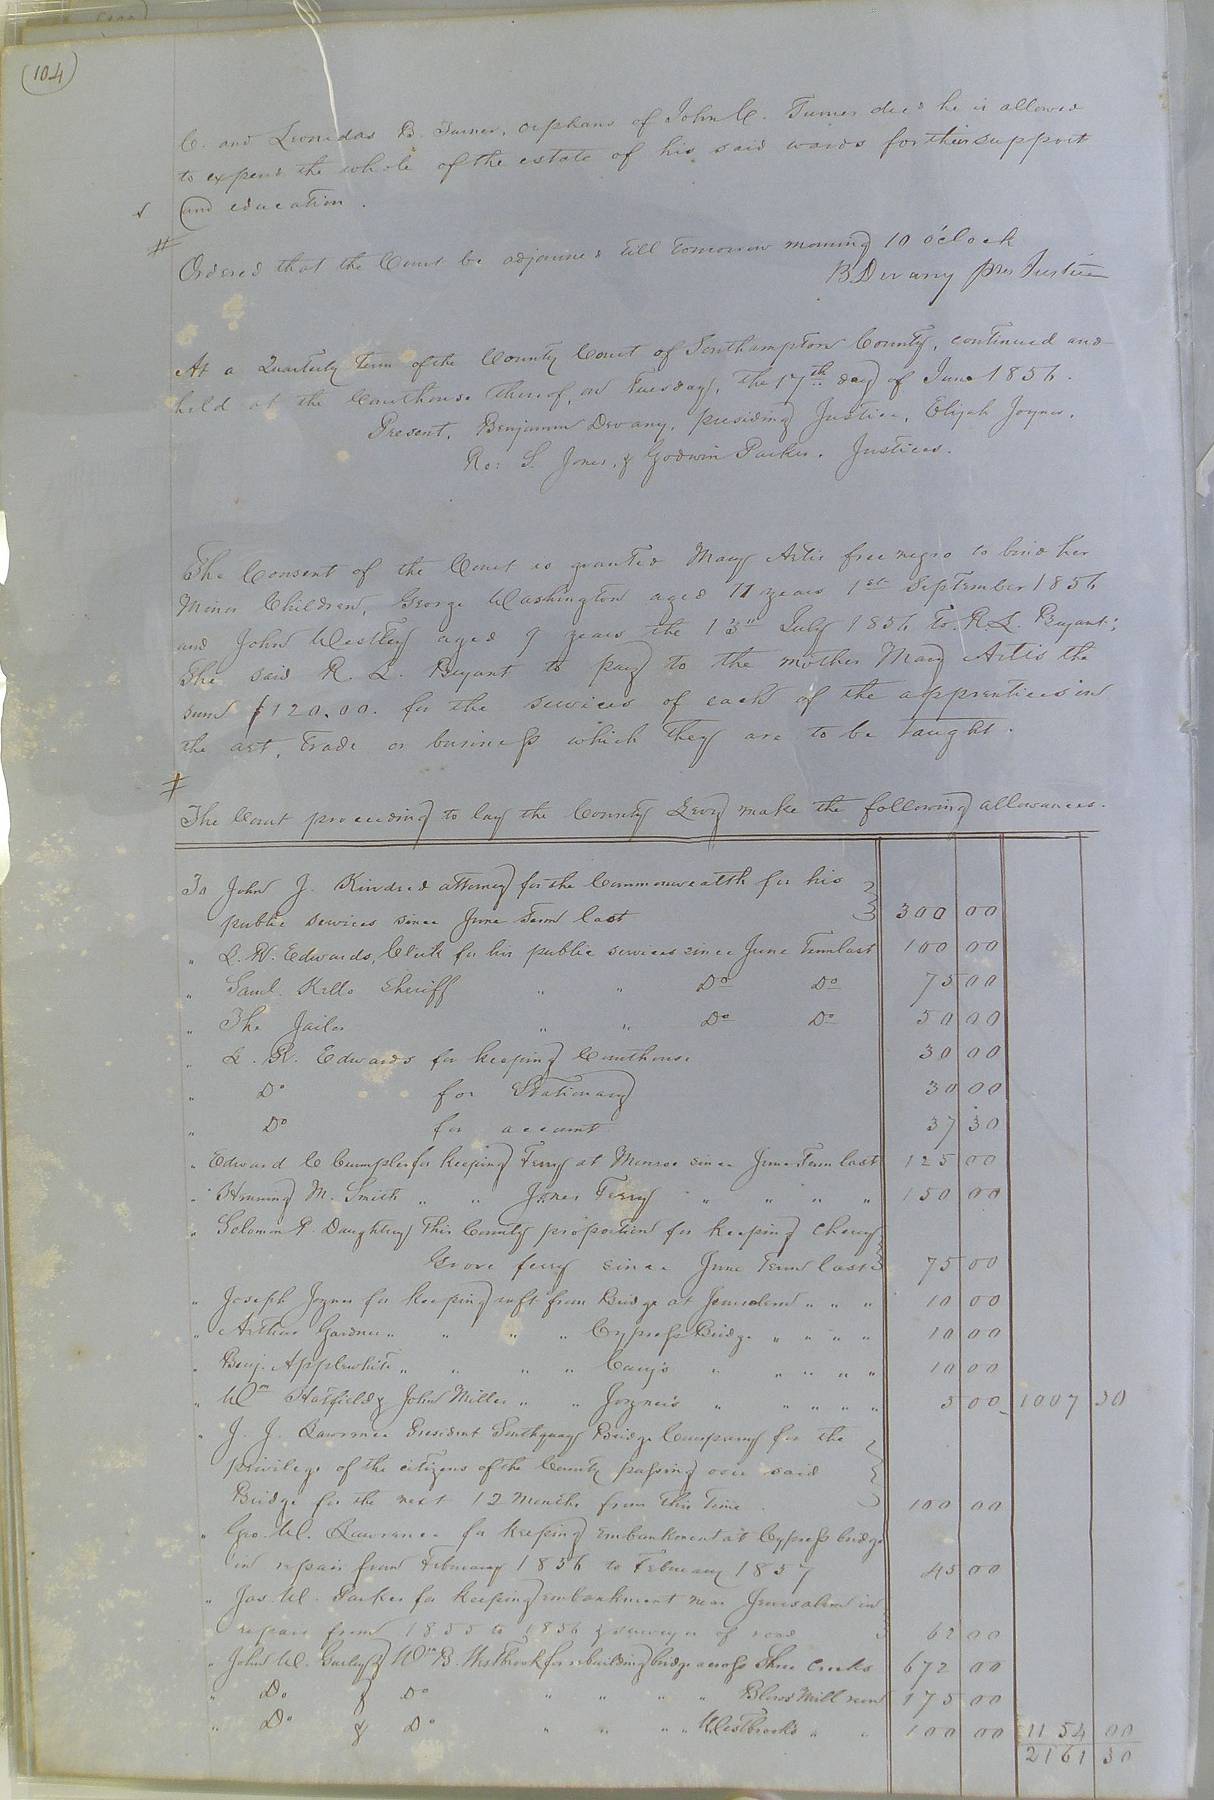 (104)
C. and Leonidas B. Turner, orphans of John C. Turner decd he is allowed
to expend the whole of the estate of his said wards for their support
and education.
Ordered that the Court be adjourned till tomorrow morning 10 o'clock
B Devany pres Justice
At a Quarterly Term of the County Court of Southampton County, continued and
held at the Courthouse thereof, on Tuesday, the 17th day of June 1856.
Present, Benjamin Devany, presiding Justice, Elijah Joyner,
Ro: S. Jones, & Godwin Parker, Justices.
The Consent of the Court is granted Mary Artis free negro to bind her
Minor Children, George Washington aged 11 years 1st September 1856
and John Westley aged 9 years the 13th July 1856 to R. L. Bryant;
The said R. L. Bryant to pay to the mother Mary Artis the
sum $120.00. for the services of each of the apprentices in
the art, trade or business which they are to be taught.
The Court proceeding to lay the County Levy make the following allowances.
To John J. Kindred attorney for the Commonwealth for his
public services since June Term last 300 00
" L. R. Edwards, Clerk for his public services since June Term last 100 00
" Saml. Kello Sheriff " " Do Do 75 00
" The Jailor " " Do Do 50 00
" L. R. Edwards for keeping Courthouse 30 00
" Do for Stationary 30 00
" Do for account 37 30
" Edward C Crumpler for keeping Ferry at Monroe since June Term last 125 00
" M. Smith " " Jones Ferry " " " " 150 00
" Solomon P. Daughtrey this County proportion for keeping Cherry
Grove ferry since June Term last 75 00
" Joseph Joyner for keeping raft from Bridge at Jerusalem " " " 10 00
" Arthur Gardner " " " " Cypress Bridge " " " " 10 00
" Benj. Applewhite " " " " Cary's " " " " " 10 00
" Wm Hatfield & John Miller " " Joyner's " " " " " 5 00 1007 30
" J. J. Lawrence President Southquay Bridge Company for the
privilege of the citizens of the County passing over said
Bridge for the next 12 Months from this time. 100 00
" Geo. W. Lawrence for keeping embankment at Cypress bridge
in repair from February 1856 to February 1857 45 00
" Jas. W. Parker for keeping embankment near Jerusalem in
repair from 1855 to 1856 & surveyor of road 62 00
" John W. & Wm B. Westbrook for rebuilding bridge across Three Creeks 672 00
" Do & Do " " " " Blows Mill run 175 00
" Do & Do " " " " Westbrook's " " 100 00 1154 00
2161 30